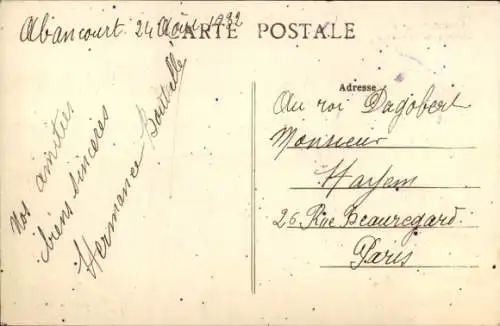 Abancourt 24 Août 1932
CARTE POSTALE
Nos amitiés
biens sincères
Hermance
Adresse
Au roi Dagobert
Monsieur
Hayem
26 Rue Beauregard
Paris